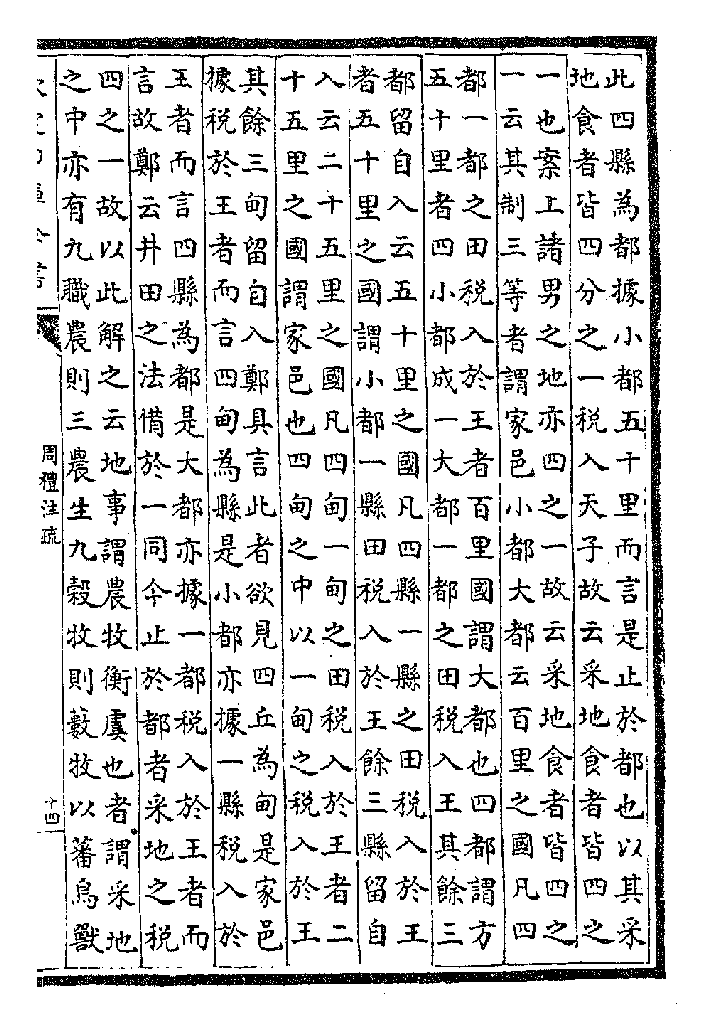 此四縣為都據小都五十里而言是止於都也以其采
地食者皆四分之一税入天子故云采地食者皆四之
一也案上諸男之地亦四之一故云采地食者皆四之
一云其制三等者謂家邑小都大都云百里之國凡四
都一都之田税入於王者百里國謂大都也四都謂方
五十里者四小都成一大都一都之田税入王其餘三
都留自入云五十里之國凡四縣一縣之田税入於王
者五十里之國謂小都一縣田税入於王餘三縣留自
入云二十五里之國凡四甸一甸之田税入於王者二
十五里之國謂家邑也四甸之中以一甸之税入於王
其餘三甸留自入鄭具言此者欲見四丘為甸是家邑
據税於王者而言四甸為縣是小都亦據一縣税入於
王者而言四縣為都是大都亦據一都税入於王者而
言故鄭云井田之法備於一同今止於都者采地之税
四之一故以此解之云地事謂農牧衡虞也者謂采地
之中亦有九職農則三農生九穀牧則藪牧以蕃鳥獸
周禮注疏
十四